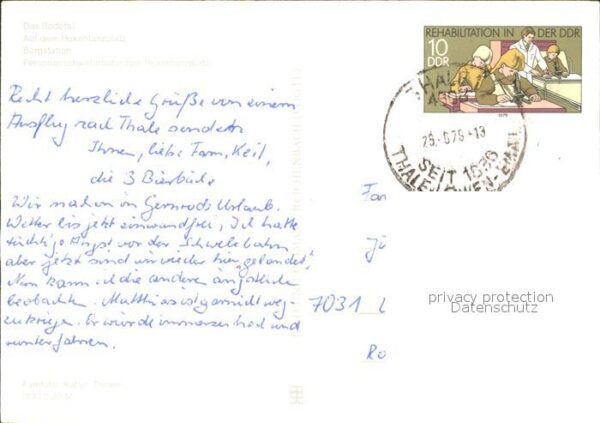 Das Bodetal
Auf dem Hexentanzplatz
Bergstation
Personenschwebebahn
REHABILITATION IN DER DDR
10
DDR
1979
THALE
SEIT 1686
THALE
Recht herzliche Grüße von einem
Ausflug nach Thale senden
Ihnen, liebe Fam. Keil,
die 3 Bierbücke
Wir machen in Gernrode Urlaub.
Wetter bis jetzt einwandfrei, Ich hatte
tüchtige Angst vor der Schwebebahn
aber jetzt sind wir wieder hier "gelandet".
Nun kann ich die anderen ängstlichen
beobachten. Matthias ist gar nicht weg-
zukriegen. Er würde immerzu hoch und
runter fahren.
Fa
Jü
7031 L
Ro
privacy protection
Datenschutz